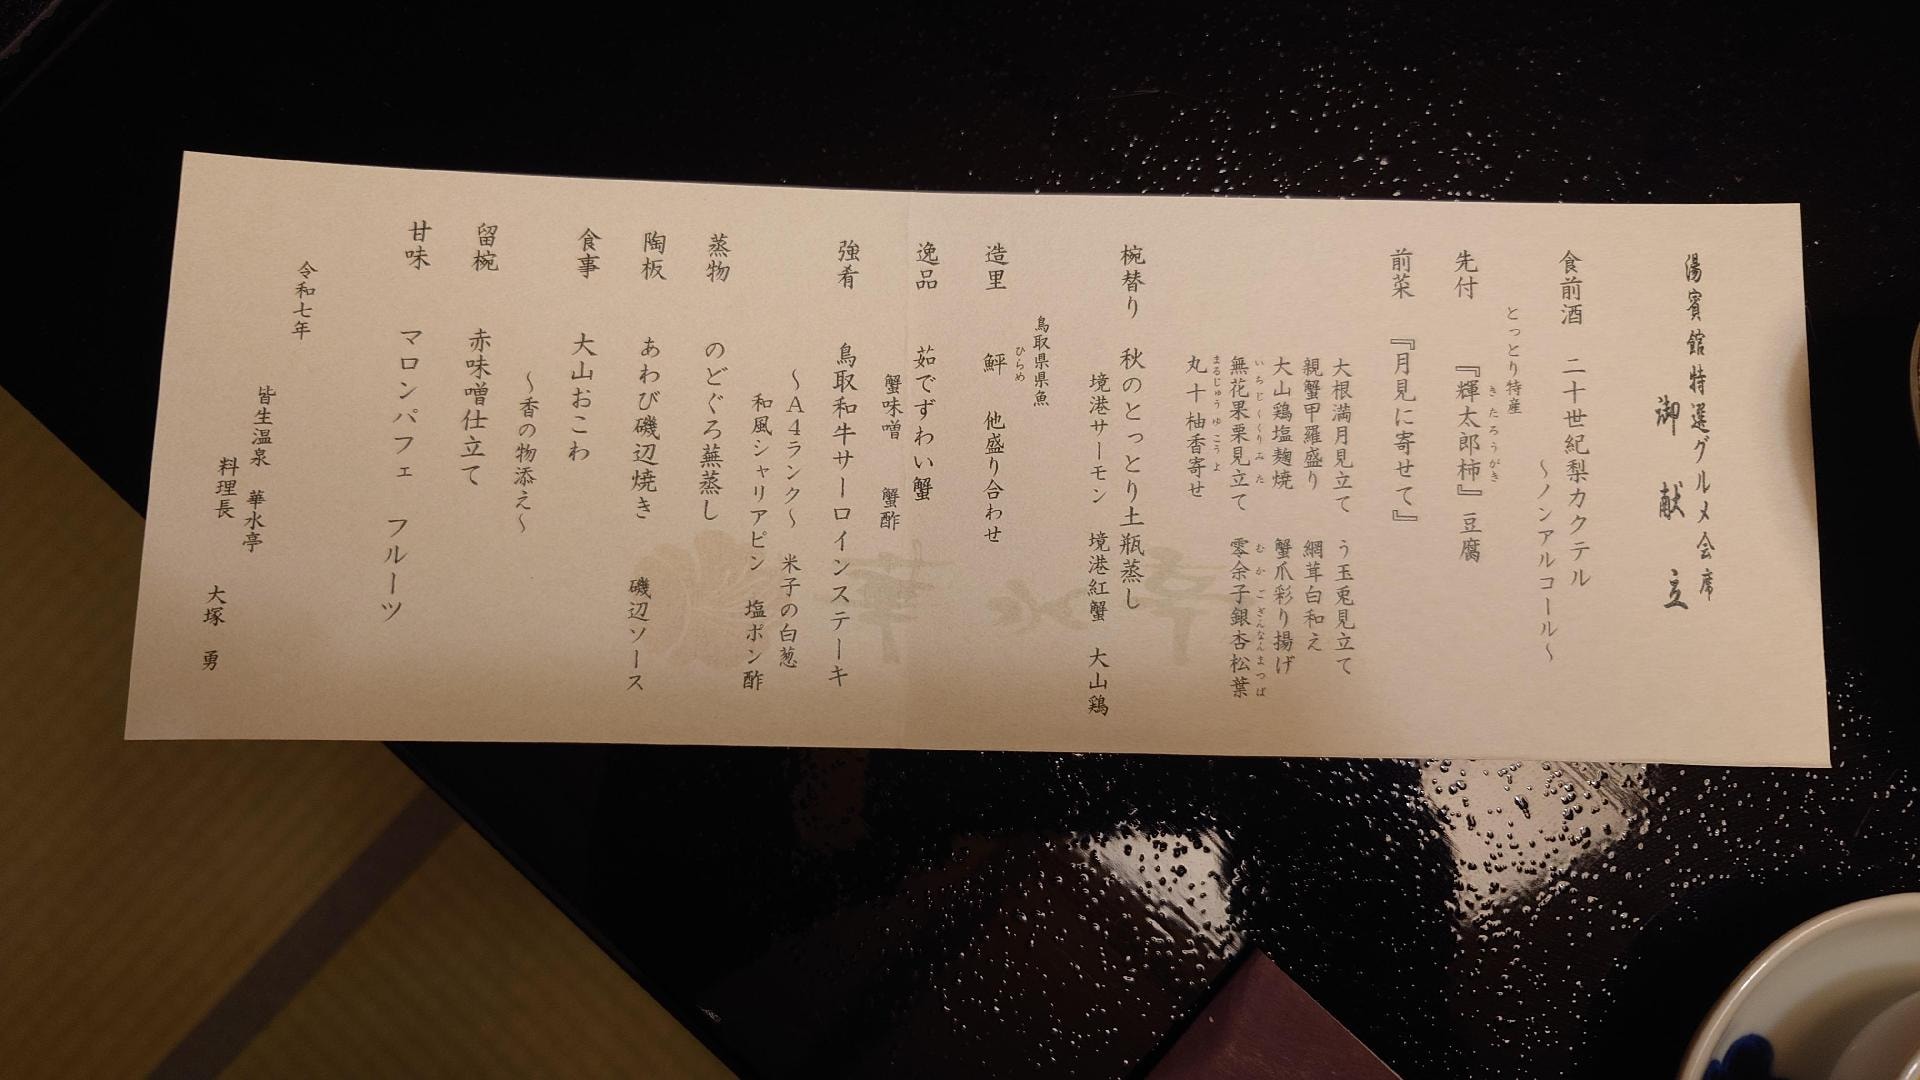 湯賓館特選グルメ会席
御献立
食前酒 二十世紀梨カクテル
～ノンアルコール～
とっとり特産
先付 『輝太郎柿』豆腐
きたろうがき
前菜 『月見に寄せて』
大根満月見立て う玉兎見立て
親蟹甲羅盛り 網茸白和え
大山鶏塩麹焼 蟹爪彩り揚げ
無花果栗見立て 零余子銀杏松葉
いちじくくりみた むかごぎんなんまつば
丸十柚香寄せ
まるじゅうゆこうよ
椀替り 秋のとっとり土瓶蒸し
境港サーモン 境港紅蟹 大山鶏
鳥取県県魚
造里 鮃 他盛り合わせ
ひらめ
逸品 茹でずわい蟹
蟹味噌 蟹酢
強肴 鳥取和牛サーロインステーキ
～A4ランク～ 米子の白葱
和風シャリアピン 塩ポン酢
蒸物 のどぐろ蕪蒸し
陶板 あわび磯辺焼き 磯辺ソース
食事 大山おこわ
～香の物添え～
留椀 赤味噌仕立て
甘味 マロンパフェ フルーツ
令和七年
皆生温泉 華水亭
料理長 大塚 勇
華水亭